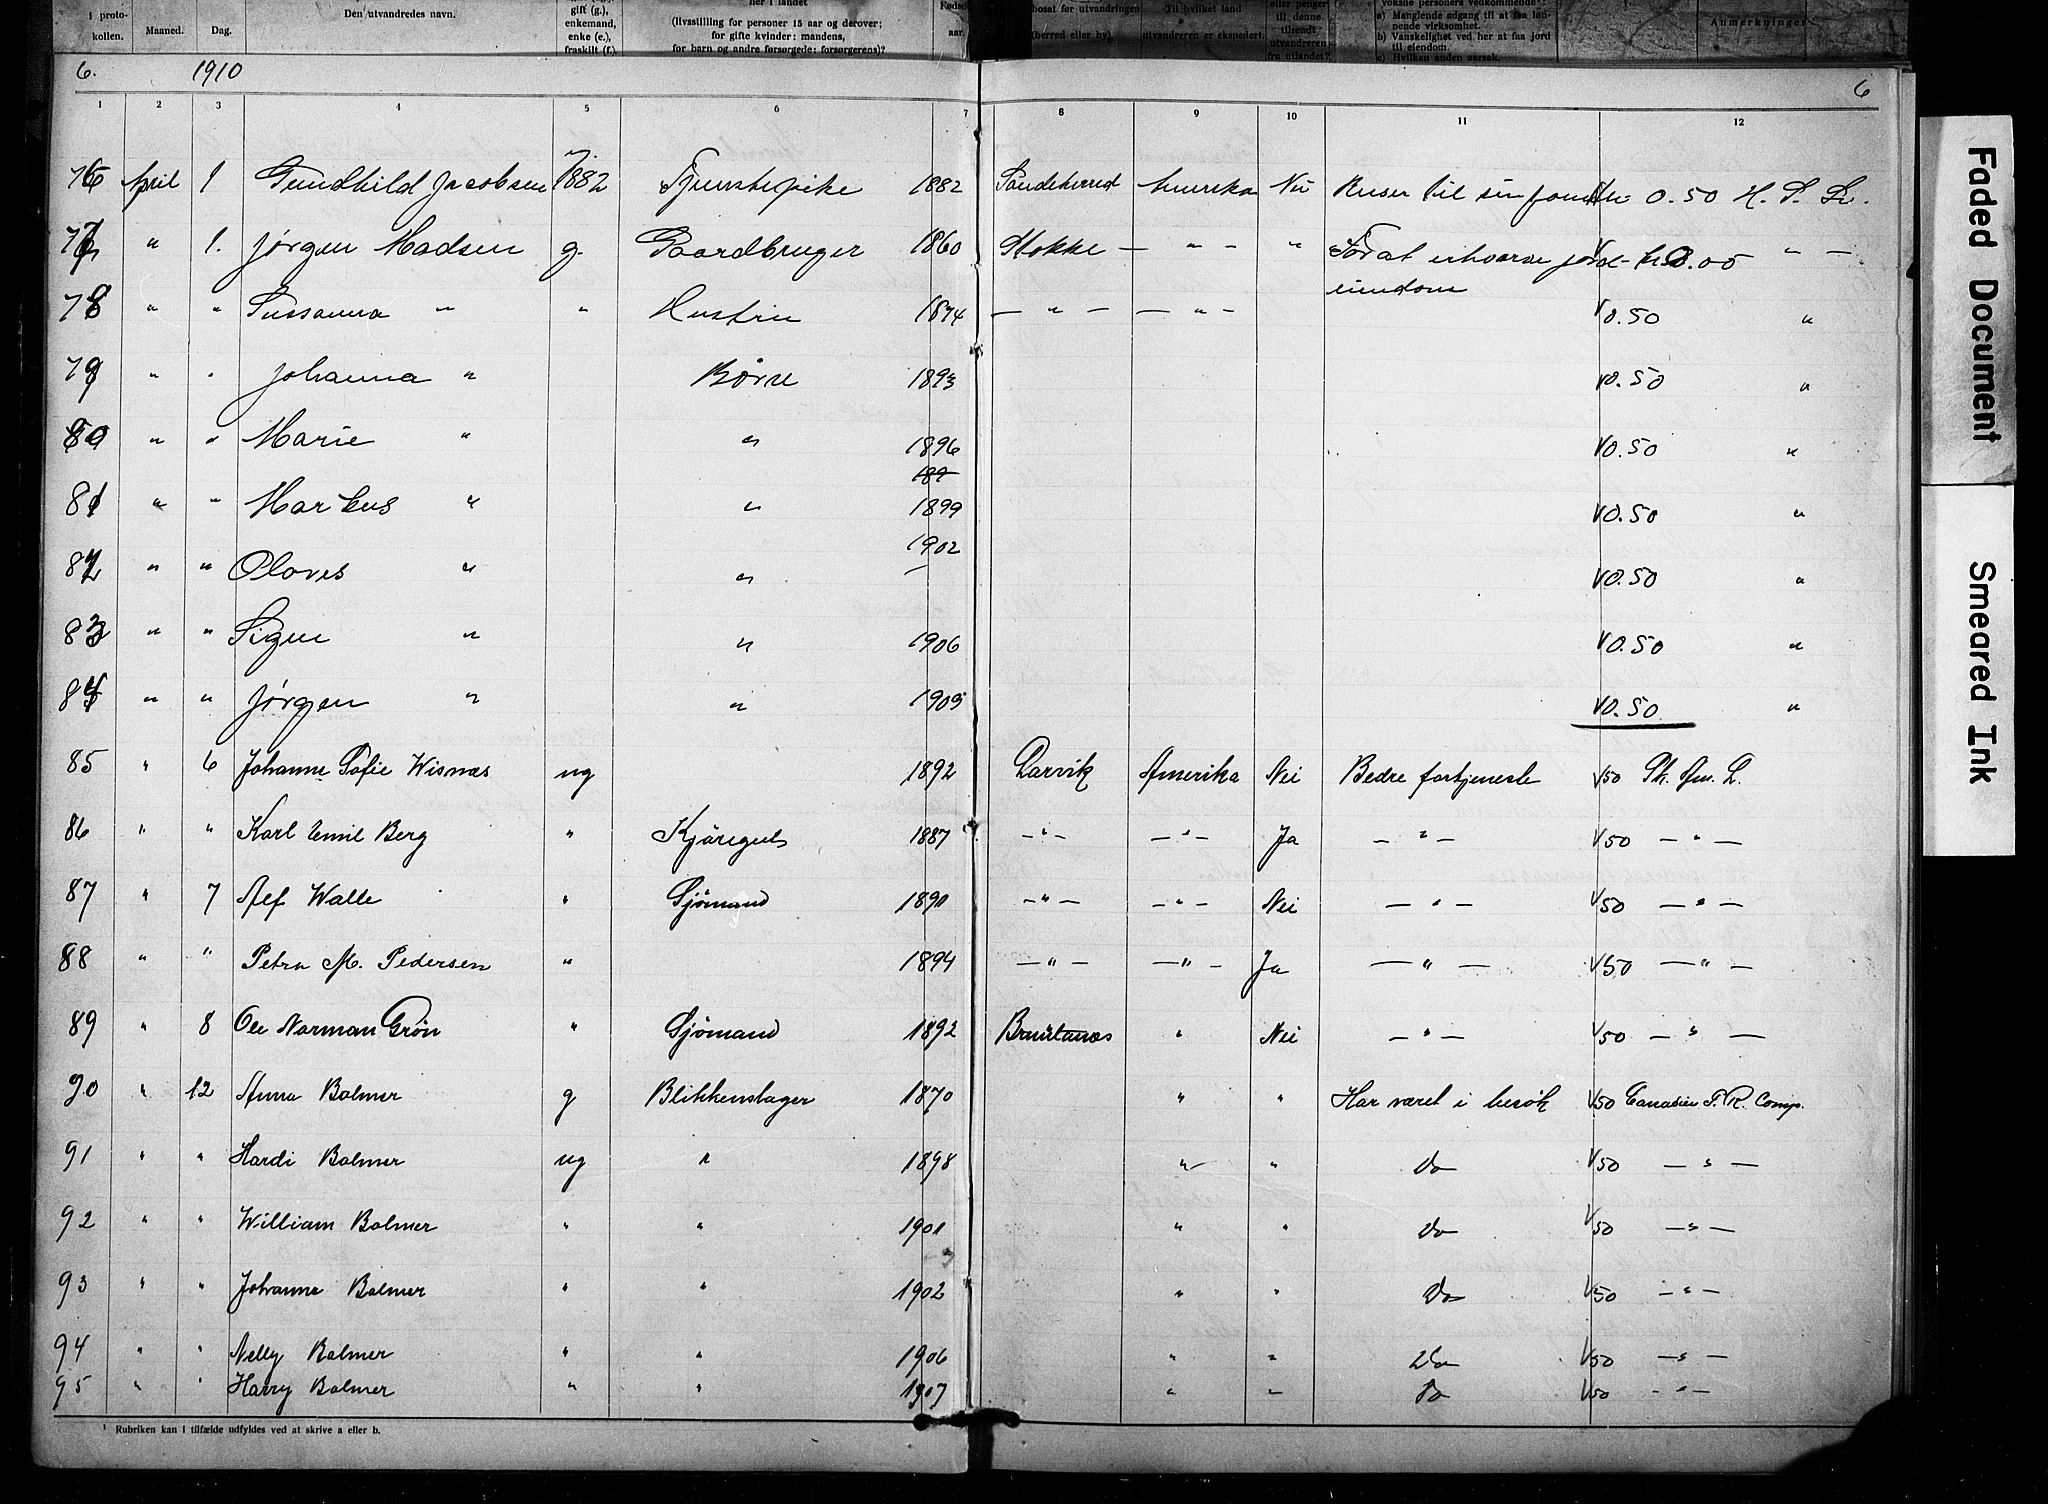 I proto-
kollen.
Maaned.
Dag.
Den utvandredes navn.
gift (g.),
enkemand,
enke (e.),
fraskilt (f.).
her i landet
(livsstilling for personer 15 aar og derover;
for gifte kvinder: mandens,
for barn og andre forsørgede: forsørgerens)?
aar.
bosat før utvandringen
(herred eller by).
Til hvilket land
utvandreren er ekspedert.
eller penger
til denne
tilsendt
utvandreren
fra utlandet?
voksne personers vedkommende:
a) Manglende adgang til at faa løn-
nende virksomhet.
b) Vanskelighet ved her at faa jord
til eiendom.
c) Hvilken anden aarsak.
Anmerkninger
6. 1910 6
1 2 3 4 5 6 7 8 9 10 11 12
76 April 1 Gundhild Jacobsen 1882 Tjenstepike 1882 Sandeherred Amerika Nei Reiser til sin familie 0.50 H. S. L.
77 " 1. Jørgen Madsen g. Gaardbruger 1860 Stokke — " — " For at erhverve jord- " —
eiendom
78 " " Sussanna " " Hustru 1874 — " — — " — 0.50 "
79 " " Johanna " Børn 1893 0.50 "
80 " " Marie " " 1896 0.50 "
189
81 " " Markus " " 1899 0.50 "
82 " " Olaves " " 1902 0.50 "
83 " " Signe " " 1906 0.50 "
84 " " Jørgen " " 1909 0.50 "
85 " 6 Johanne Sofie Wisnæs ug 1892 Larvik Amerika Nei Bedre fortjeneste 1/50 Sk. Am. L.
86 " " Karl Emil Berg " Kjøregut 1887 — " — — " — Ja — " — 1/50 — " —
87 " 7 Alf Walle " Sjömand 1890 — " — — " — Nei — " — 1/50 — " —
88 " " Petra M. Pedersen " 1894 — " — — " — Ja — " — 1/50 — " —
89 " 8 Ole Norman Grön " Sjömand 1892 " Nei — " — 1/50 — " —
90 " 12 Anna Bolmer g Blikkenslager 1870 " " Har været i besök 1/50 Canadien P. R. Comp.
91 " " Hardi Bolmer ug " 1898 " " Do 1/50 — " —
92 " " William Bolmer " " 1901 " " Do 1/50 — " —
93 " " Johanna Bolmer " " 1902 " " Do 1/50 — " —
94 " " Nelly Bolmer " " 1906 " " Do 1/50 — " —
95 " " Harry Bolmer " " 1907 " " Do 1/50 — " —
¹ Rubriken kan i tilfælde udfyldes ved at skrive a eller b.
Faded Document
Smeared Ink